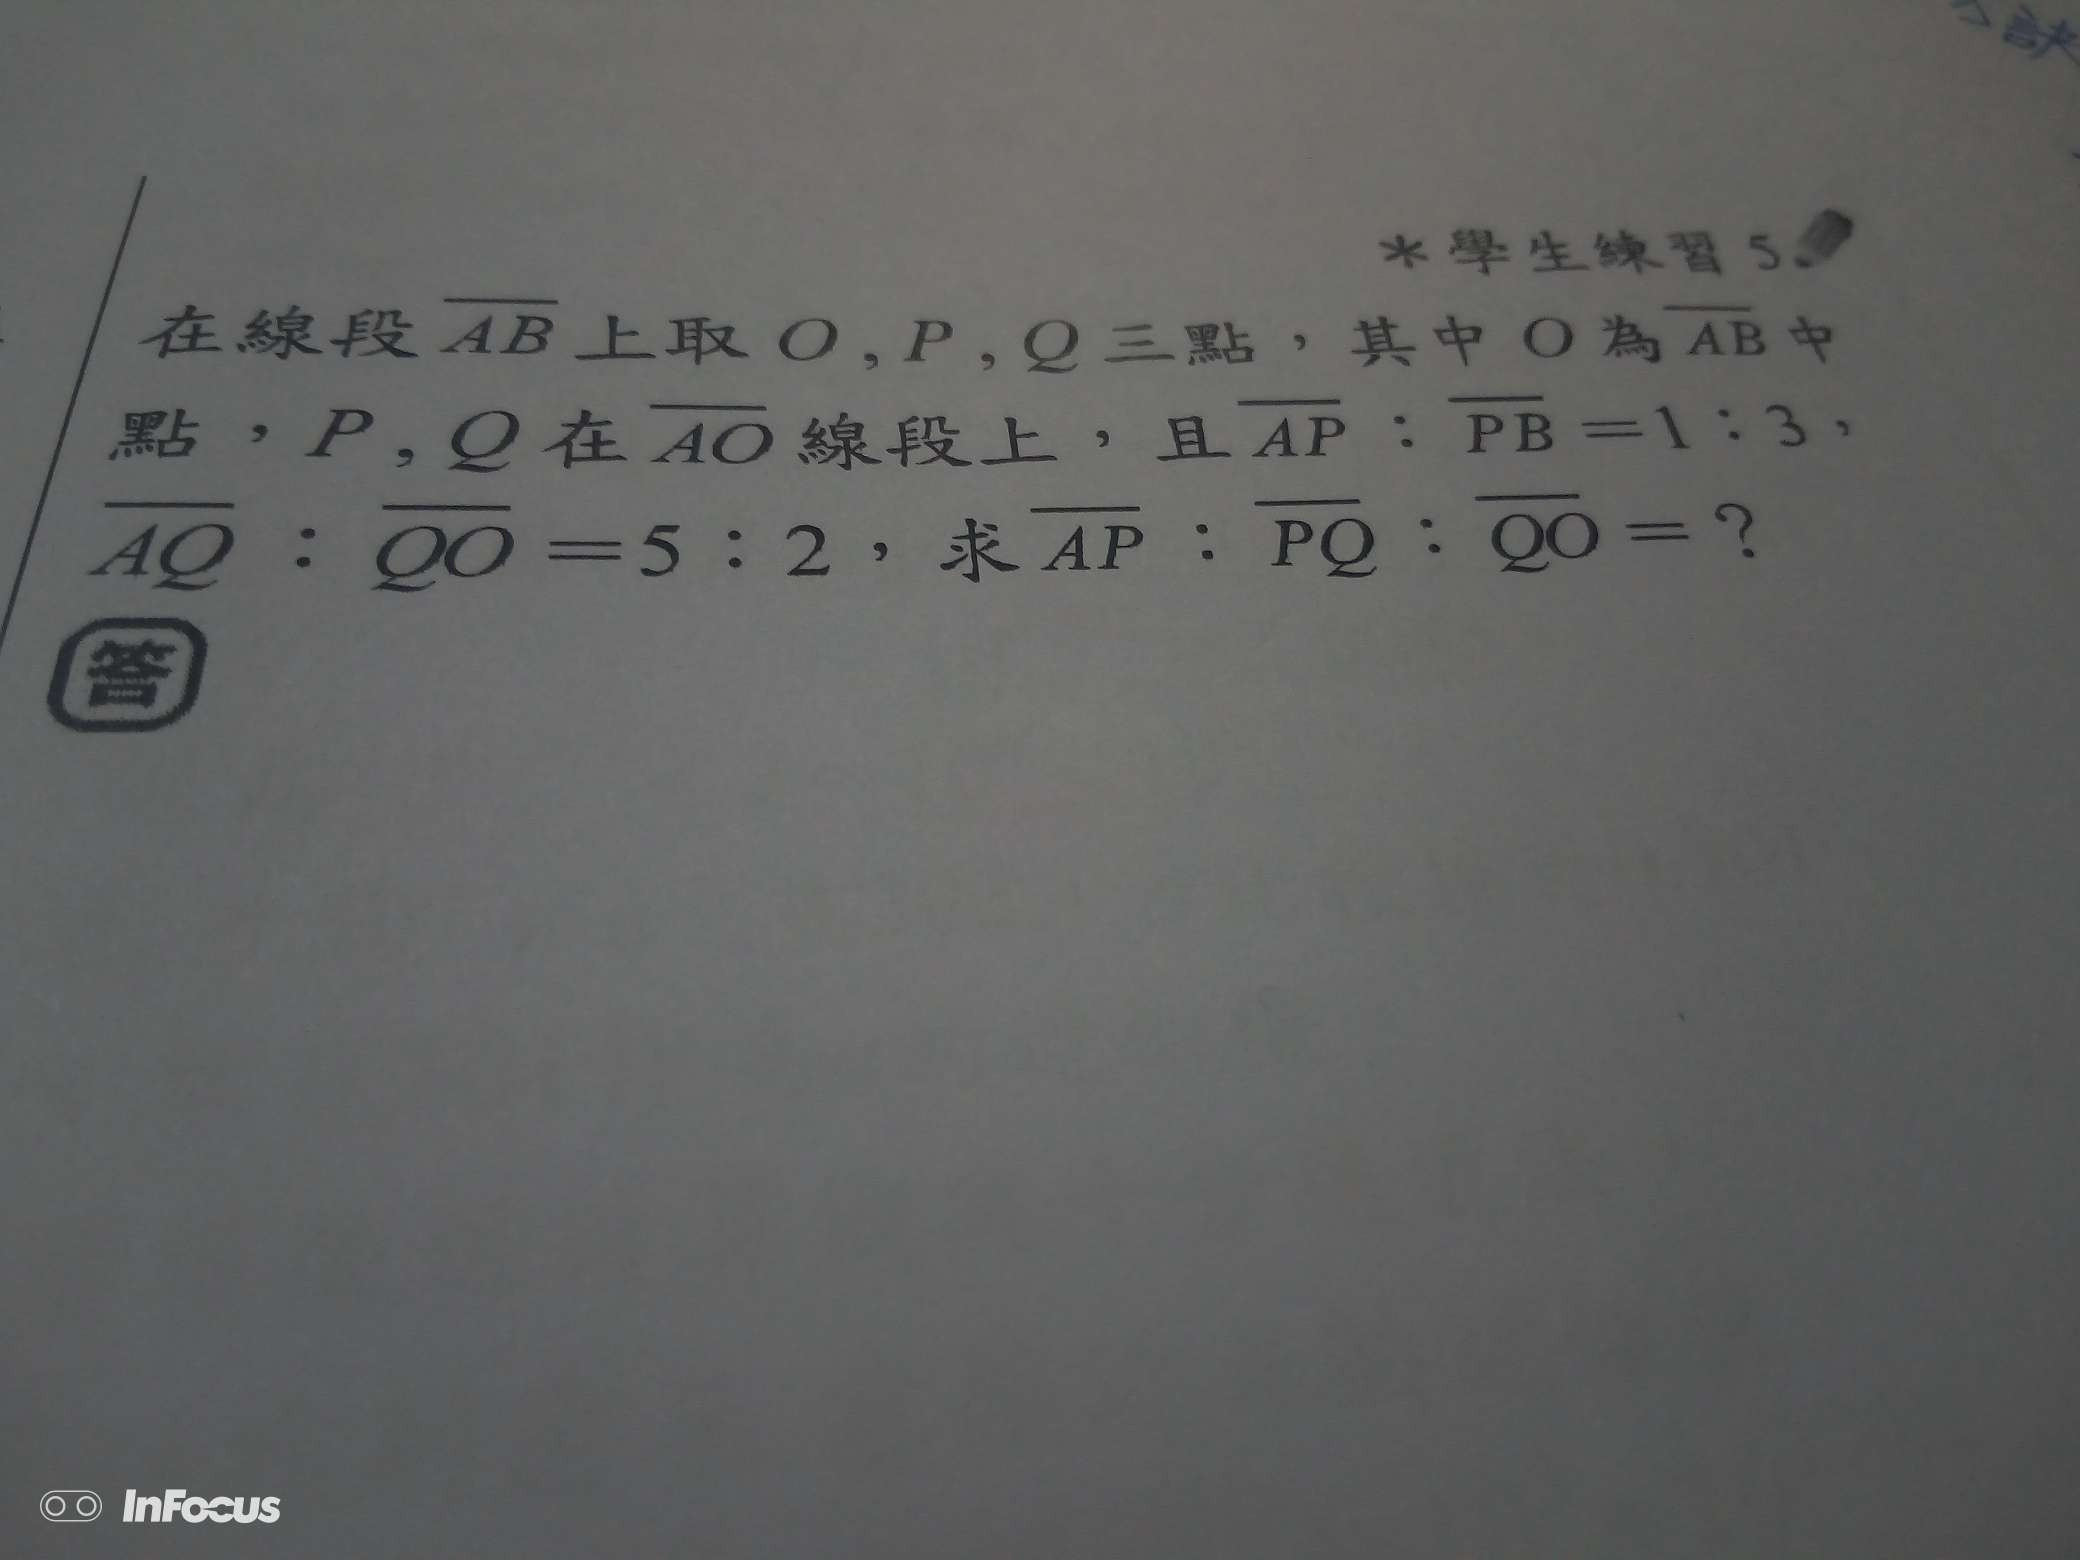 訣
＊學生練習 5.
在線段 AB 上取 O , P , Q 三點，其中 O 為 AB 中
點，P , Q 在 AO 線段上，且 AP：PB＝1：3，
AQ：QO＝5：2，求 AP：PQ：QO＝？
答
InFocus